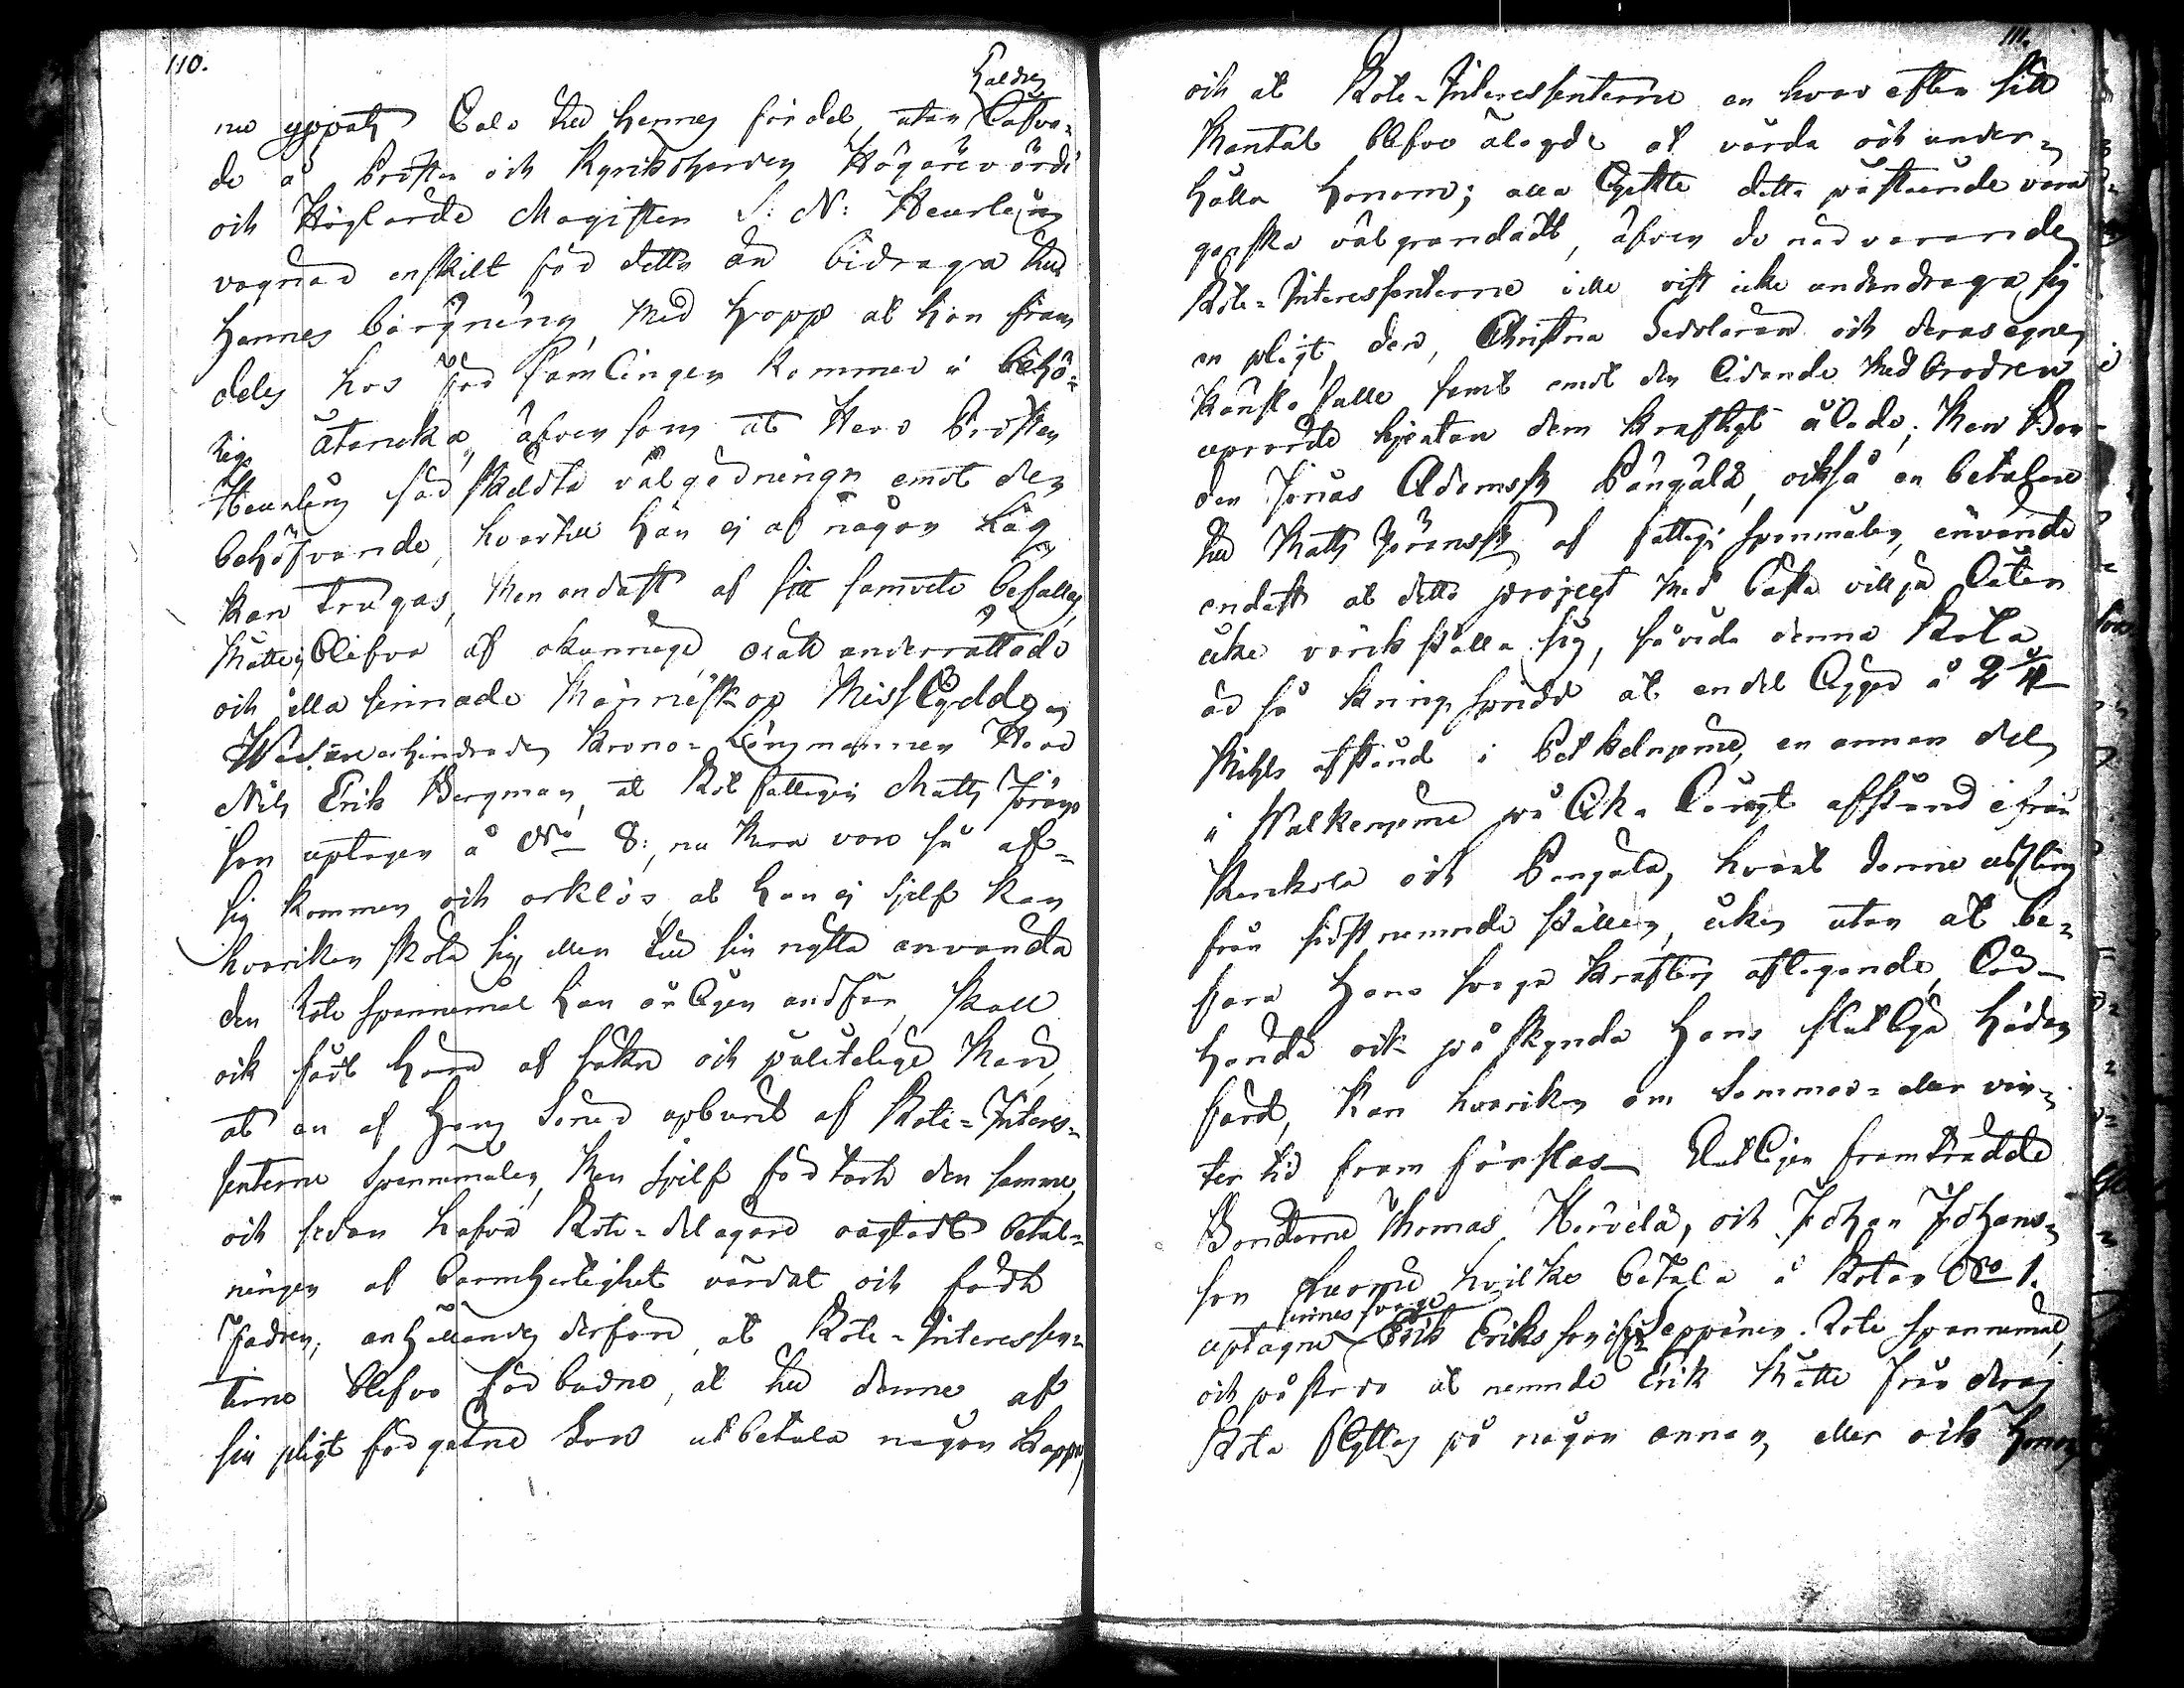 110.
Tal til hennes fördel, utan
de å Prosten och Kyrkoherden Högärevördi
och Höglärde Magisten S: N: Heurlins
vagnad enskilt för detta än bidraga till
hennes bärgning, med hopp at hon fram
deles hos Församlingen kommer i behö-
rig åtancka, äfven som at Herr Prosten
Heurlins välgedningar emot den
behöfvande, hvartill han ej af någon Lag
kan trugas, men endast af sitt samvete befallas,
Måtte ej blifva af okunnige orätt underrättade
och illa sinnade Menniskor Misstydde.
Krono-Länsmannen Herr
Nils Erik Bergman, at Rotfattigen Matts Jörans
son uptagen å No 8:, nu mera vore så af-
sig kommen och orklös, at han ej sjelf kan
hvarken sköta sig, eller till sin nytta använda
den Rote spannemål han årligen undfår, skall
ock fådt höra af säkre och pålitelige Män,
at en af hans Söner upburit af Rote-Interes-
senterne spannemålen, men sjelf förtärt den samme,
och sedan hafva Rote-delagare oagtadt betal-
ningen af barmhertighet vårdat och födt
Fadren; anhållandes derföre, at Rote-Interessen-
terne blefvo förbudne, at till denne af
sin pligt förgätne Son utbetala någon kappe,
111.
och at Rote-Interessenterne en hvar efter sitt
Mantal blefvo ålagde at vårda och under-
hålla honom; alla tyckte detta påstående vara
ganska välgrundadt, äfven de närvarande
Rote-Interessenterne ville visst icke undandraga sig
en pligt, den Christna Sedoläran och deras egne
känslofulle sinne emot den lidande Medbrodren
uprörde hjertan dem kraftigt ålade; Men Bon-
den Jonas Adamss: Pängälä, också en betalare
till Matts Jöranss: af fattig spannmålen, invände
endast at detta project med bästa vilja låter
icke värkställa sig, så vida denna Rota
är så kring spridd at en del ligger å 2 1/4
Mihls afstånd i Petkelnpme, en annan del
i Walkenpme på lika långt afstånd ifrån
och Pangala, hvart denne usling
från sidstnemnde ställen, icke utan at be-
fara hans svaga krafters aftagande, Död-
hända ock påskynda hans slutliga hädan
färd, kan hvarken om Sommar- eller vin-
ter tid fram förslas. Slutligen framträdde
Bönderne Thomas Hirvelä, och Johan Johans-
son hvilke betala å Rotan No 1.
uptagne sinnes svage Erik Eriksson Seppänen Rote spannemål,
och påstodo at nemnde Erik Måtte från deras
Rota flyttas på någon annan, eller ock honom